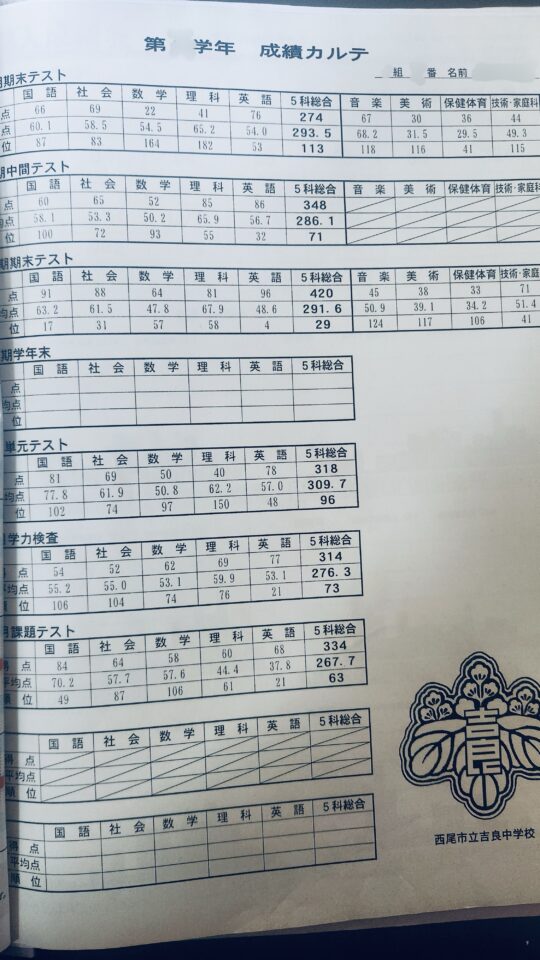 第 学年 成績カルテ
組 番 名前
期期末テスト
国語 社会 数学 理科 英語 5科総合 音楽 美術 保健体育 技術・家庭科
点 66 69 22 41 76 274 67 30 36 44
点 60.1 58.5 54.5 65.2 54.0 293.5 68.2 31.5 29.5 49.3
位 87 83 164 182 53 113 118 116 41 115
期中間テスト
国語 社会 数学 理科 英語 5科総合 音楽 美術 保健体育 技術・家庭科
点 60 65 52 85 86 348
均点 58.1 53.3 50.2 65.9 56.7 286.1
位 100 72 93 55 32 71
期期末テスト
国語 社会 数学 理科 英語 5科総合 音楽 美術 保健体育 技術・家庭
点 91 88 64 81 96 420 45 38 33 71
均点 63.2 61.5 47.8 67.9 48.6 291.6 50.9 39.1 34.2 51.4
位 17 31 57 58 4 29 124 117 106 41
期学年末
国語 社会 数学 理科 英語 5科総合
点
均点
位
単元テスト
国語 社会 数学 理科 英語 5科総合
点 81 69 50 40 78 318
均点 77.8 61.9 50.8 62.2 57.0 309.7
位 102 74 97 150 48 96
学力検査
国語 社会 数学 理科 英語 5科総合
得点 54 52 62 69 77 314
平均点 55.2 55.0 53.1 59.9 53.1 276.3
順位 106 104 74 76 21 73
月課題テスト
国語 社会 数学 理科 英語 5科総合
得点 84 64 58 60 68 334
平均点 70.2 57.7 57.6 44.4 37.8 267.7
順位 49 87 106 61 21 63
国語 社会 数学 理科 英語 5科総合
得点
平均点
順位
国語 社会 数学 理科 英語 5科総合
得点
平均点
順位
吉良
中
西尾市立吉良中学校